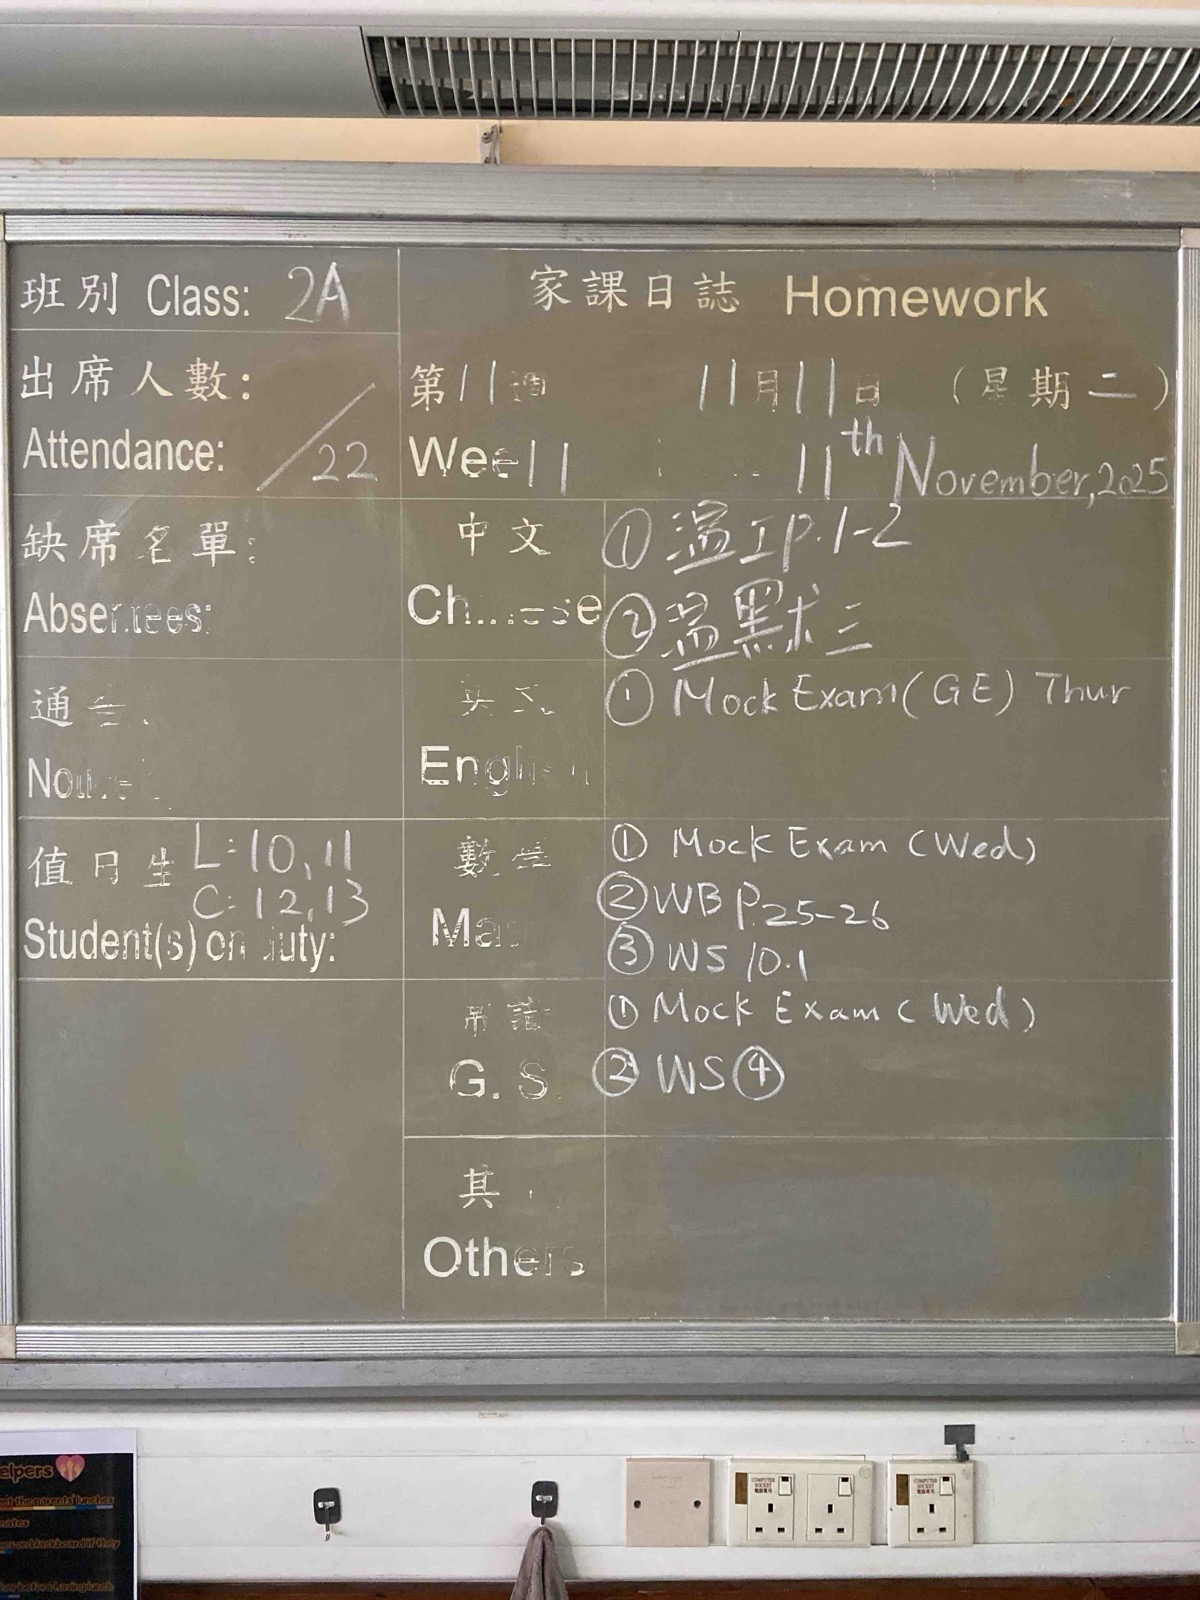 班別 Class: 2A
家課日誌 Homework
出席人數:
Attendance: /22
第11週 11月11日 (星期二)
Wee 11 11th November, 2025
缺席名單:
Absentees:
中文
Chinese
① 溫工P.1-2
② 溫默三
通告
英文
English
① Mock Exam (GE) Thur
值日生 L: 10, 11
C: 12, 13
Student(s) on duty:
數學
Ma
① Mock Exam (Wed)
② WB P.25-26
③ WS 10.1
常識
G. S.
① Mock Exam (Wed)
② WS ④
其
Others
elpers
COMPUTER SOCKET
COMPUTER SOCKET